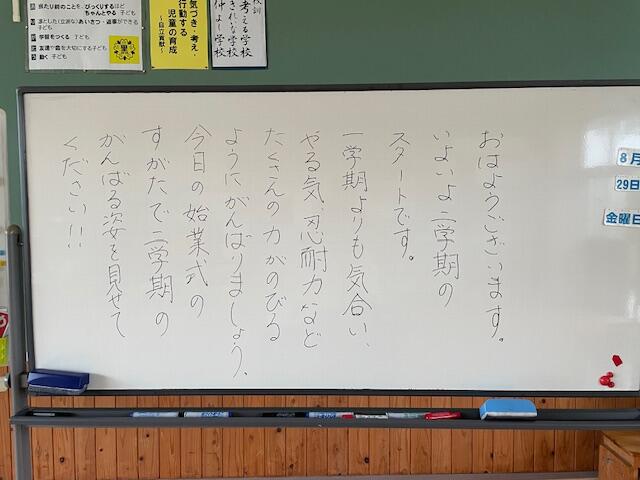 おはようございます。
いよいよ二学期の
スタートです。
一学期よりも気合い、
やる気、忍耐力など
たくさんの力がのびる
ようにがんばりましょう。
今日の始業式の
すがたで二学期の
がんばる姿を見せて
ください!!
8月
29日
金曜日
校訓
考える学校
きれいな学校
仲よし学校
気づき・考え・
行動する
児童の育成
～自立貢献～
当たり前のことを、びっくりするほど
ちゃんとやる 子ども
凛とした(立派な)あいさつ・返事ができる
子ども
学習をつくる 子ども
友達や命を大切にする子ども
動く 子ども